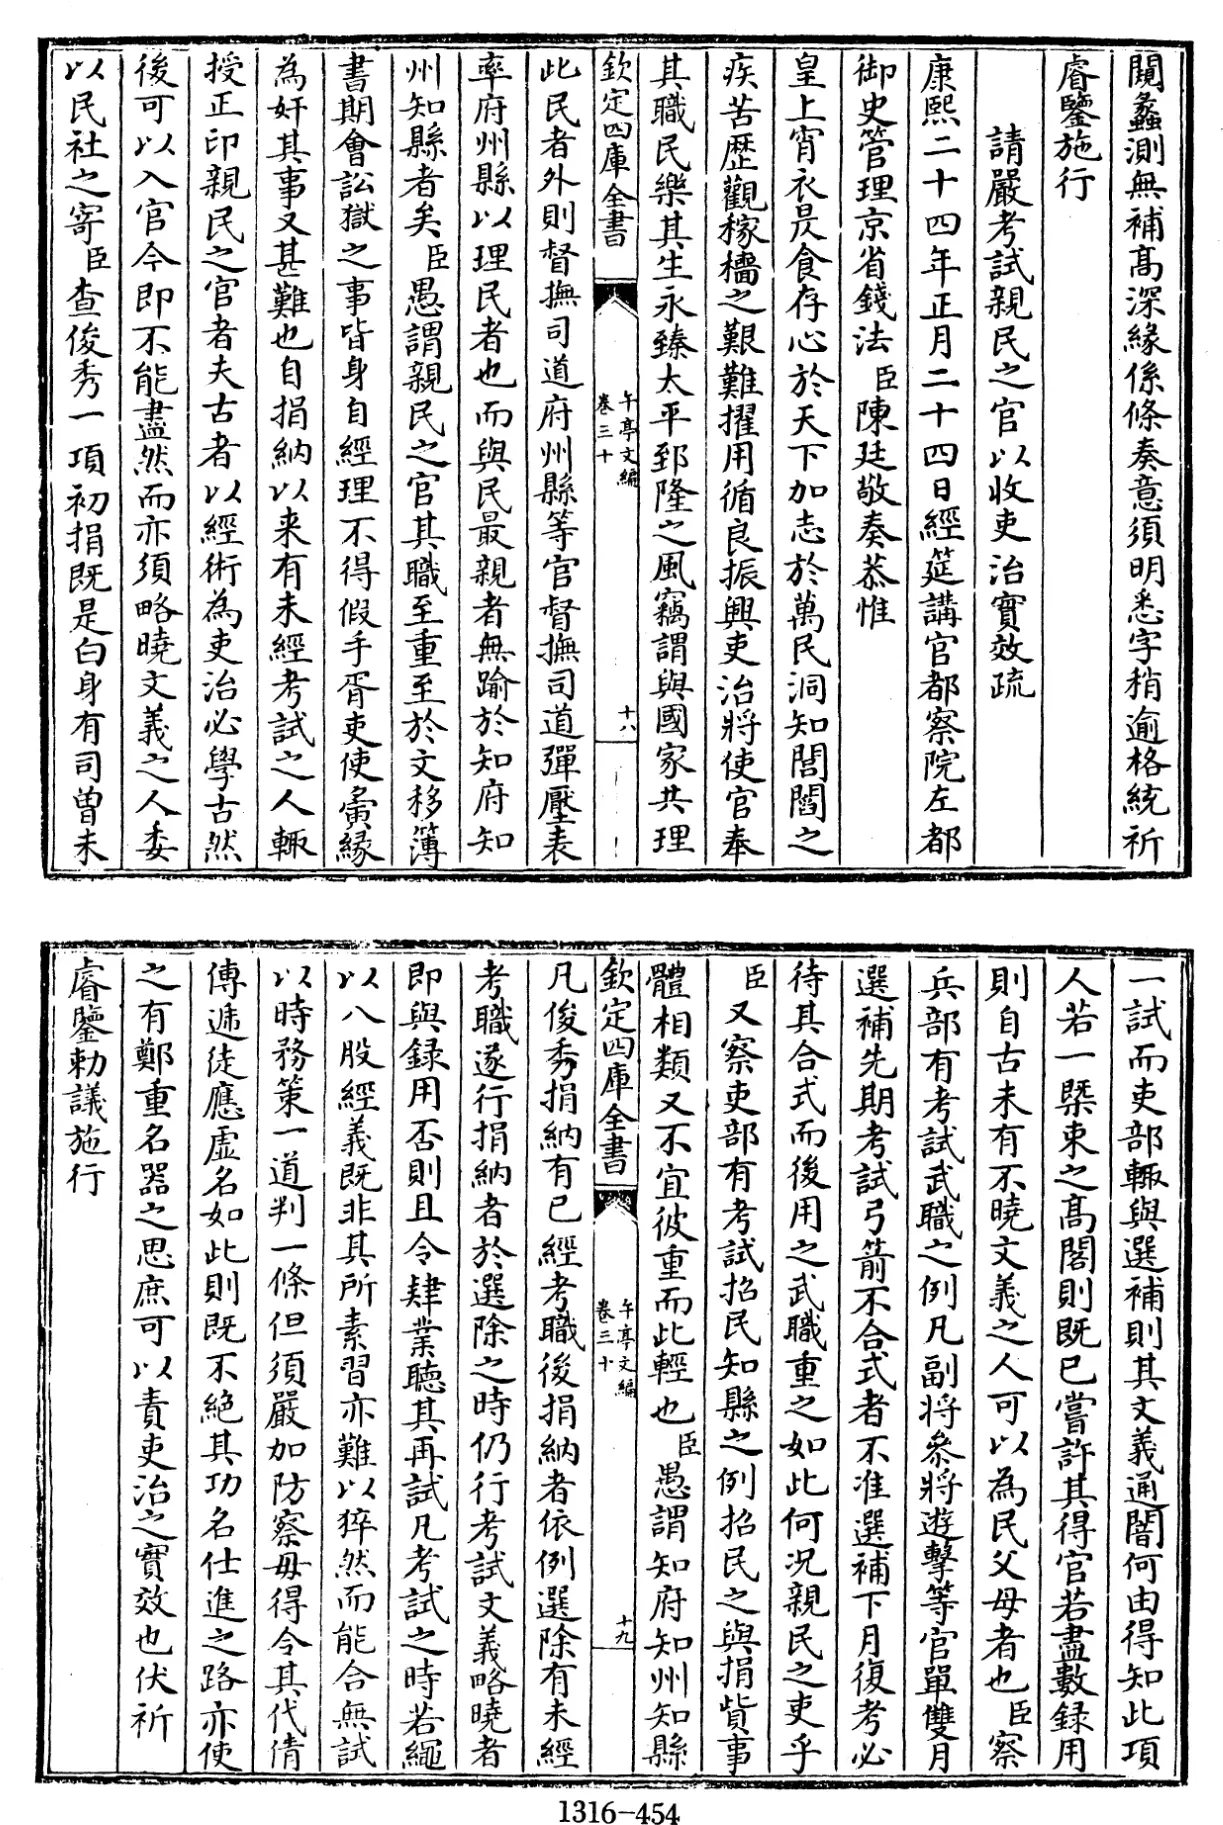 閱蠡測無補髙深緣係條奏意須明悉字稍逾格統祈
睿鑒施行
請嚴考試親民之官以收吏治實效疏
康熙二十四年正月二十四日經筵講官都察院左都
御史管理京省錢法臣陳廷敬奏恭惟
皇上宵衣昃食存心於天下加志於萬民洞知閭閻之
疾苦歴觀稼穡之艱難擢用循良振興吏治將使官奉
其職民樂其生永臻太平郅隆之風竊謂與國家共理
欽定四庫全書
午亭文編
卷三十
十八
此民者外則督撫司道府州縣等官督撫司道彈壓表
率府州縣以理民者也而與民最親者無踰於知府知
州知縣者矣臣愚謂親民之官其職至重至於文移簿
書期會訟獄之事皆身自經理不得假手胥吏使夤緣
為奸其事又甚難也自捐納以来有未經考試之人輒
授正印親民之官者夫古者以經術為吏治必學古然
後可以入官今即不能盡然而亦須略曉文義之人委
以民社之寄臣查俊秀一項初捐既是白身有司曽未
一試而吏部輒與選補則其文義通闇何由得知此項
人若一槩束之髙閣則既已嘗許其得官若盡數録用
則自古未有不曉文義之人可以為民父母者也臣察
兵部有考試武職之例凡副將叅將遊擊等官單雙月
選補先期考試弓箭不合式者不准選補下月復考必
待其合式而後用之武職重之如此何况親民之吏乎
臣又察吏部有考試招民知縣之例招民之與捐貲事
體相類又不宜彼重而此輕也臣愚謂知府知州知縣
欽定四庫全書
午亭文編
卷三十
十九
凡俊秀捐納有已經考職後捐納者依例選除有未經
考職遂行捐納者於選除之時仍行考試文義略曉者
即與録用否則且令肄業聽其再試凡考試之時若繩
以八股經義既非其所素習亦難以猝然而能合無試
以時務策一道判一條但須嚴加防察毋得令其代倩
傳遞徒應虚名如此則既不絶其功名仕進之路亦使
之有鄭重名器之思庶可以責吏治之實效也伏祈
睿鑒勅議施行
1316-454